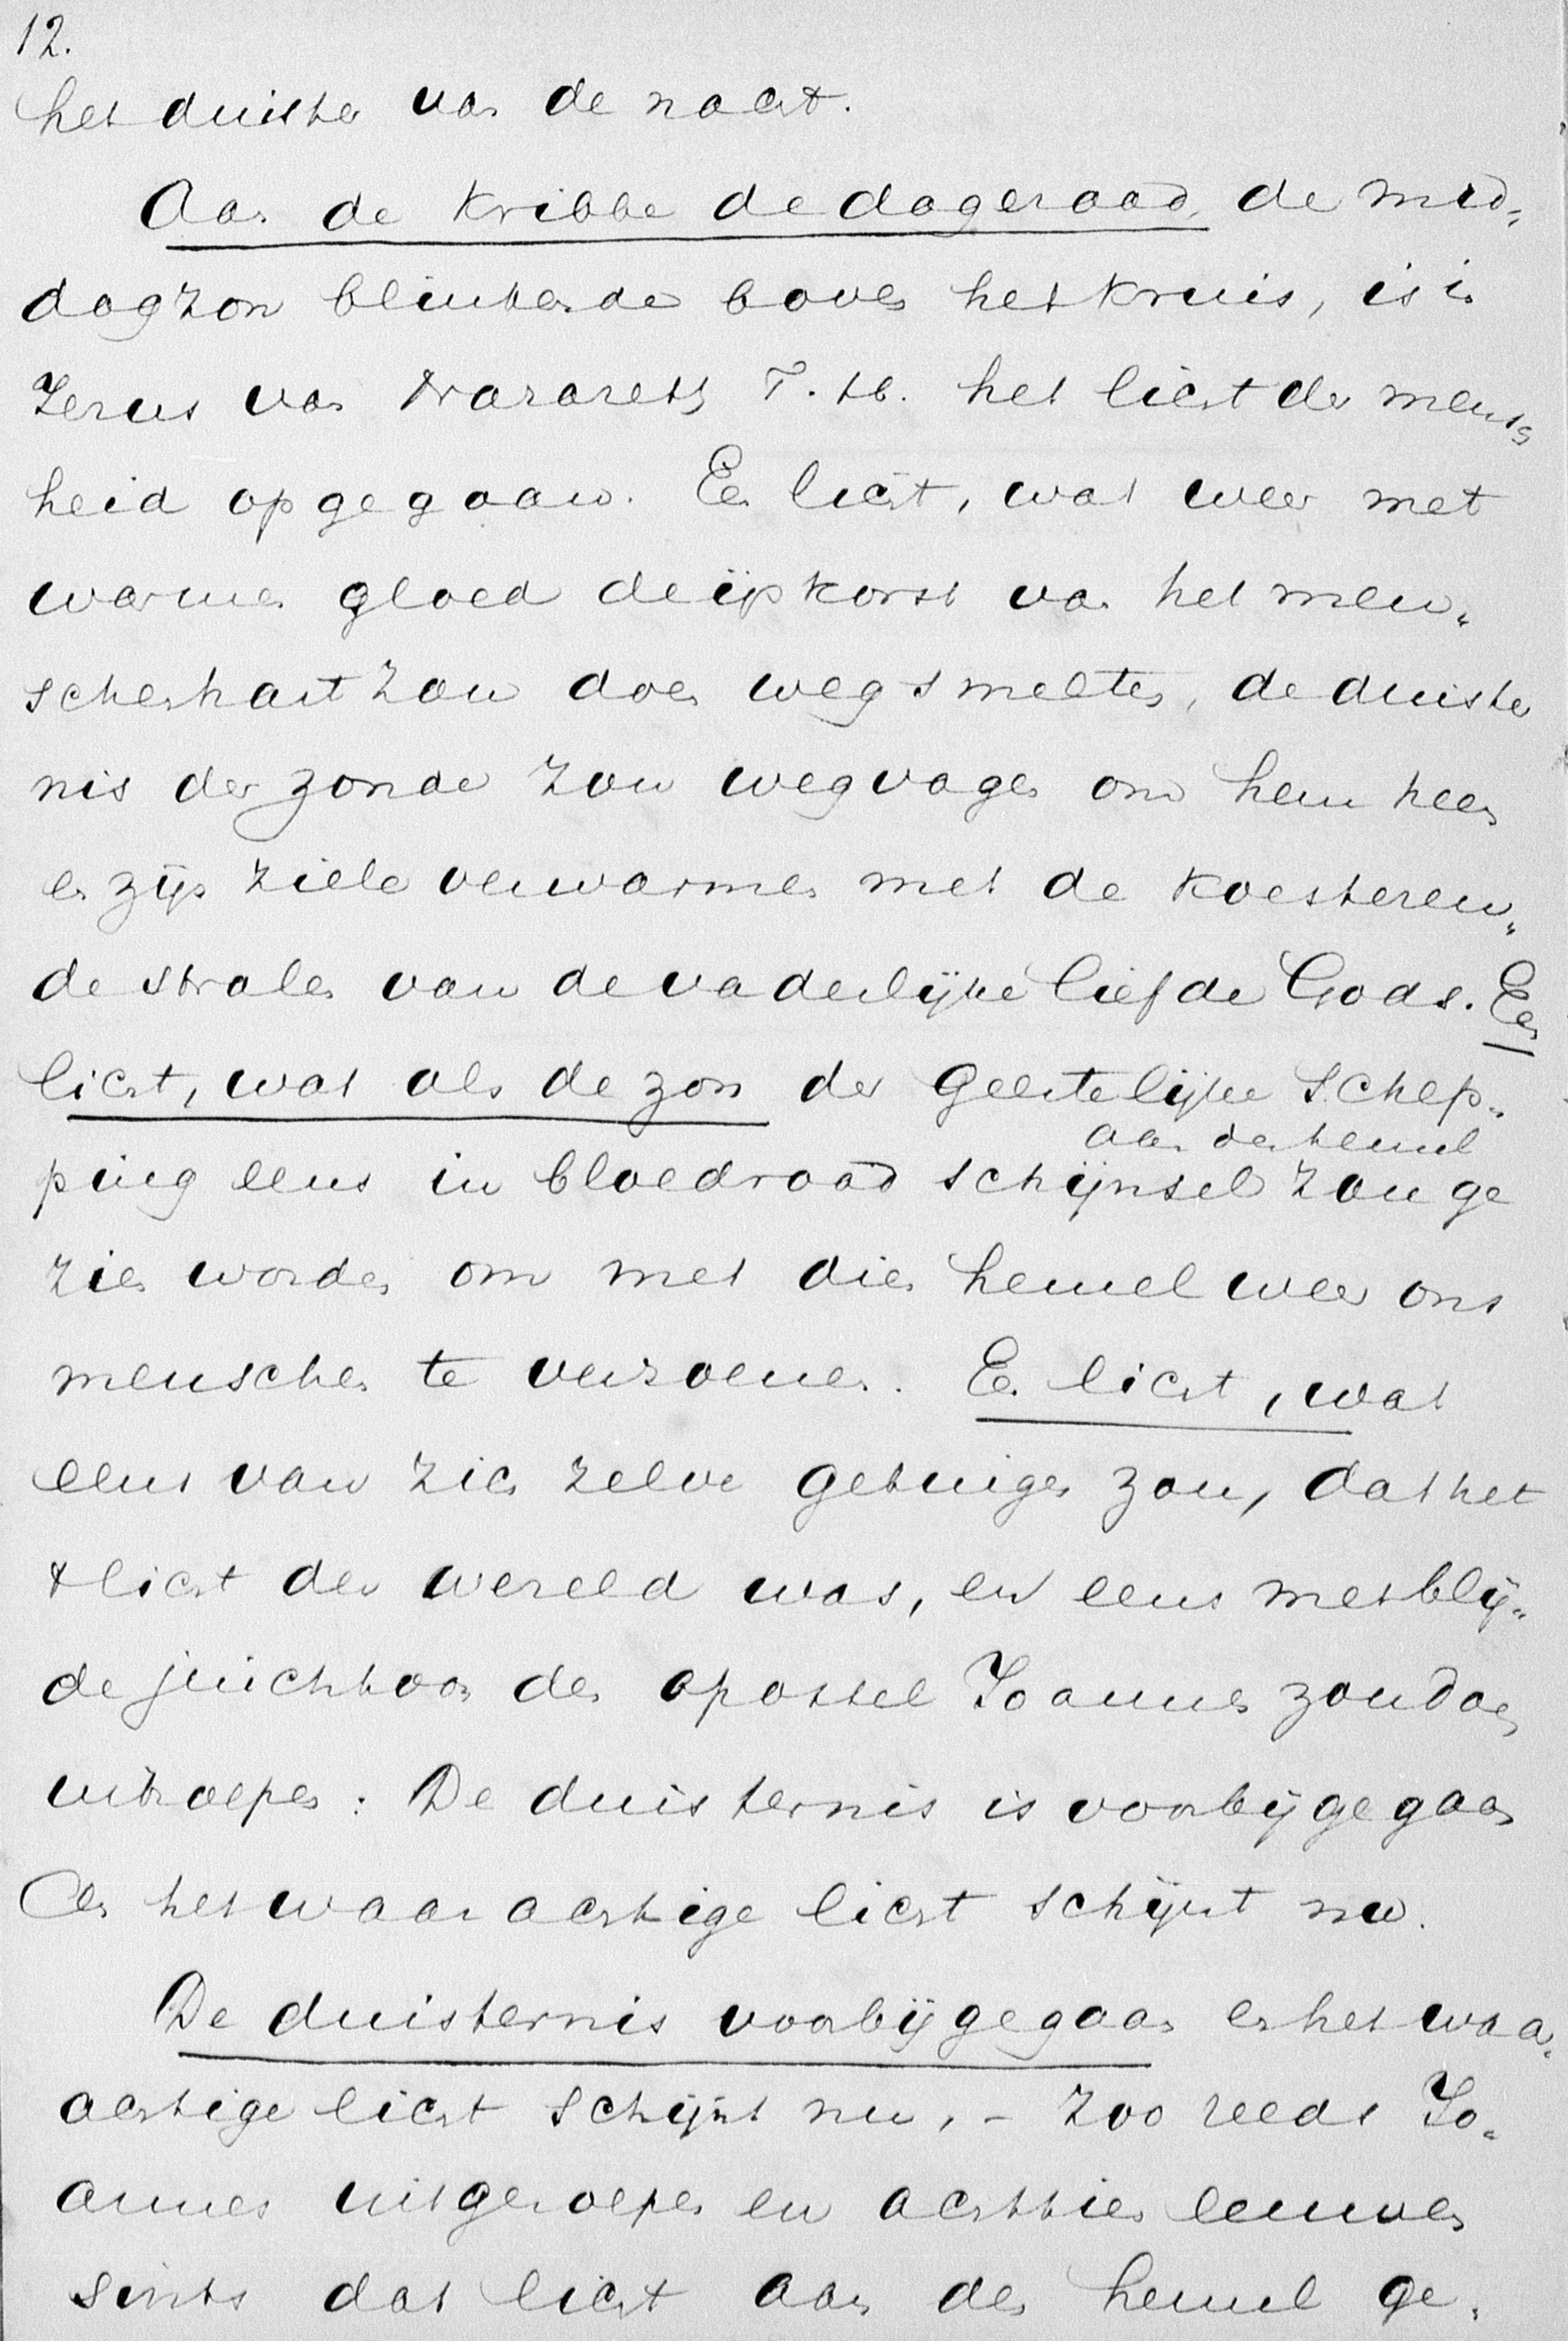 12.
het duister van de nacht.
Aan de kribbe de dageraad, de mid„
dagzon blinkende boven het kruis, is in
Jezus van Nazareth T. H. het licht der mensch
heid opgegaan. Een licht, wat weer met
warmen gloed de ijskorst van het men„
schenhart zou doen wegsmelten, de duister
nis der zonde zou wegvagen om hem heen
en zijn ziele verwarmen met de koesteren„
de stralen van de vaderlijke liefde Gods. Een
licht, wat als de zon der geestelijke schep„
aan den hemel
ping eens in bloedrood schijnsel zou ge
zien worden om met dien hemel weer ons
menschen te verzoenen. Een licht, wat
eens van zich zelve getuigen zou, dat het
't licht der wereld was, en eens met blij„
de juichtoon den apostel Joannes zou doen
uitroepen: De duisternis is voorbijgegaan
en het waarachtige licht schijnt nu.
De duisternis voorbijgegaan en het waar„
achtige licht schijnt nu, – zoo reeds Jo„
annes uitgeroepen en achttien eeuwen
sints dat licht aan den hemel ge„